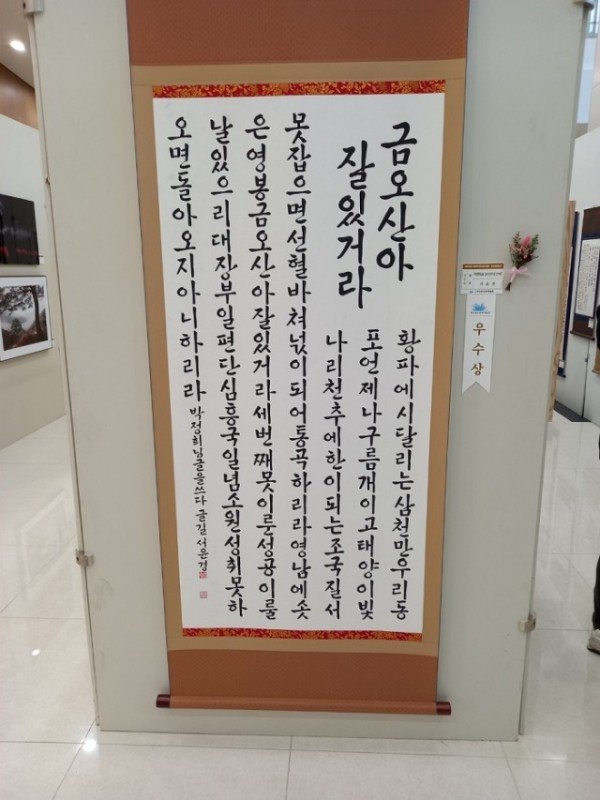 금오산아
잘있거라
황파에시달리는삼천만우리동
포언제나구름개이고태양이빛
나리천추에한이되는조국질서
못잡으면선혈바쳐넋이되어통곡하리라영남에솟
은영봉금오산아잘있거라세번째못이룬성공이룰
날있으리대장부일편단심흥국일념소원성취못하
오면돌아오지아니하리라
박정희님글을쓰다 글길 서윤경
우수상